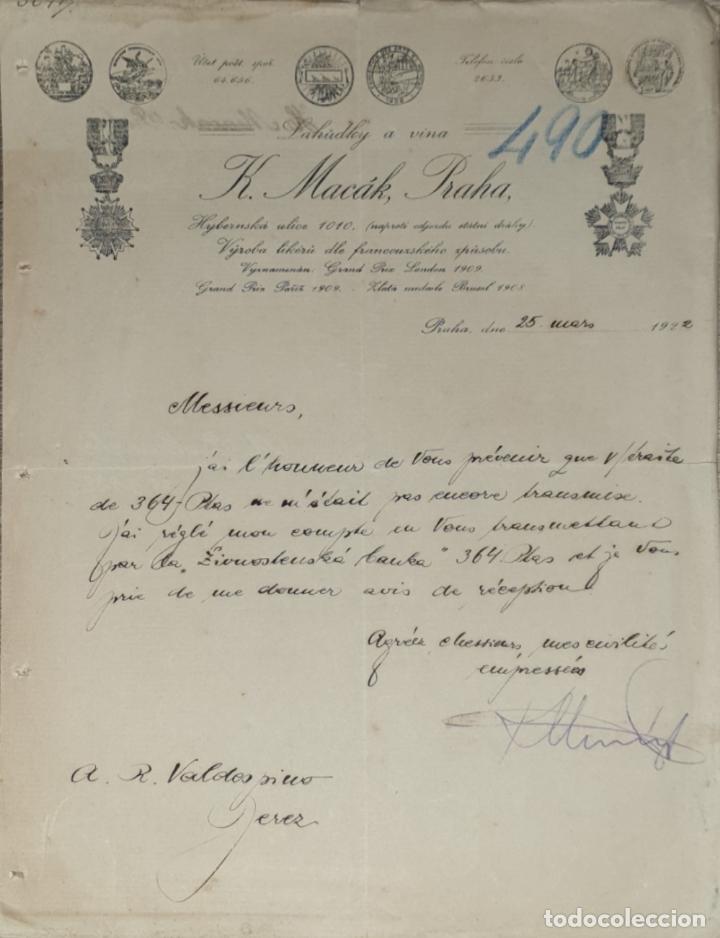 Účet pošt. spoř.
64.656.
Telefon číslo
2633.
Lahůdky a vína
490
K. Macák, Praha,
Hybernská ulice 1010. (naproti odjezdu státní dráhy).
Výroba likérů dle francouzského způsobu.
Vyznamenán: Grand Prix London 1909.
Grand Prix Paříž 1909. - Zlatá medaile Brusel 1908.
Praha, dne 25. mars 1922
Messieurs,
j'ai l'honneur de Vous prévenir que v/traite
de 364.- Ptas ne m'était pas encore transmise.
J'ai réglé mon compte en Vous transmettant
par la „Živnostenská banka" 364. Ptas et je Vous
prie de me donner avis de réception.
Agréez, Messieurs, mes civilités
empressées
A. R. Valdespino
Jerez
todocoleccion
todocoleccion.net